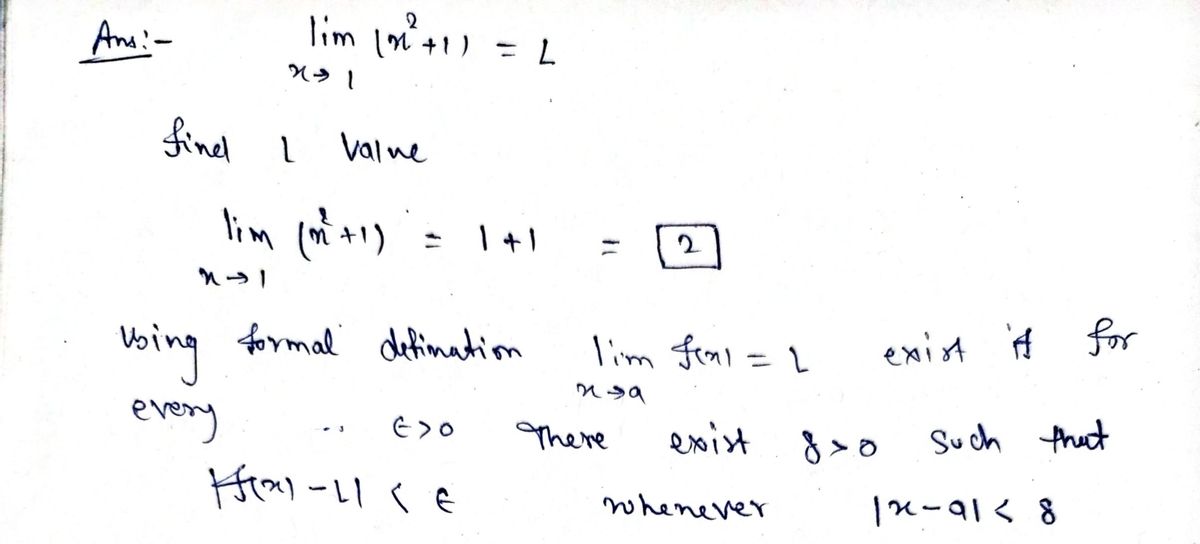 Ans:- lim (x²+1) = L
x→1
find L value
lim (x²+1) = 1+1 = 2
x→1
Using formal defination lim f(x) = L exist if for
x→a
every ϵ>0 There exist δ>0 such that
|f(x)-L| < ϵ whenever |x-a| < δ